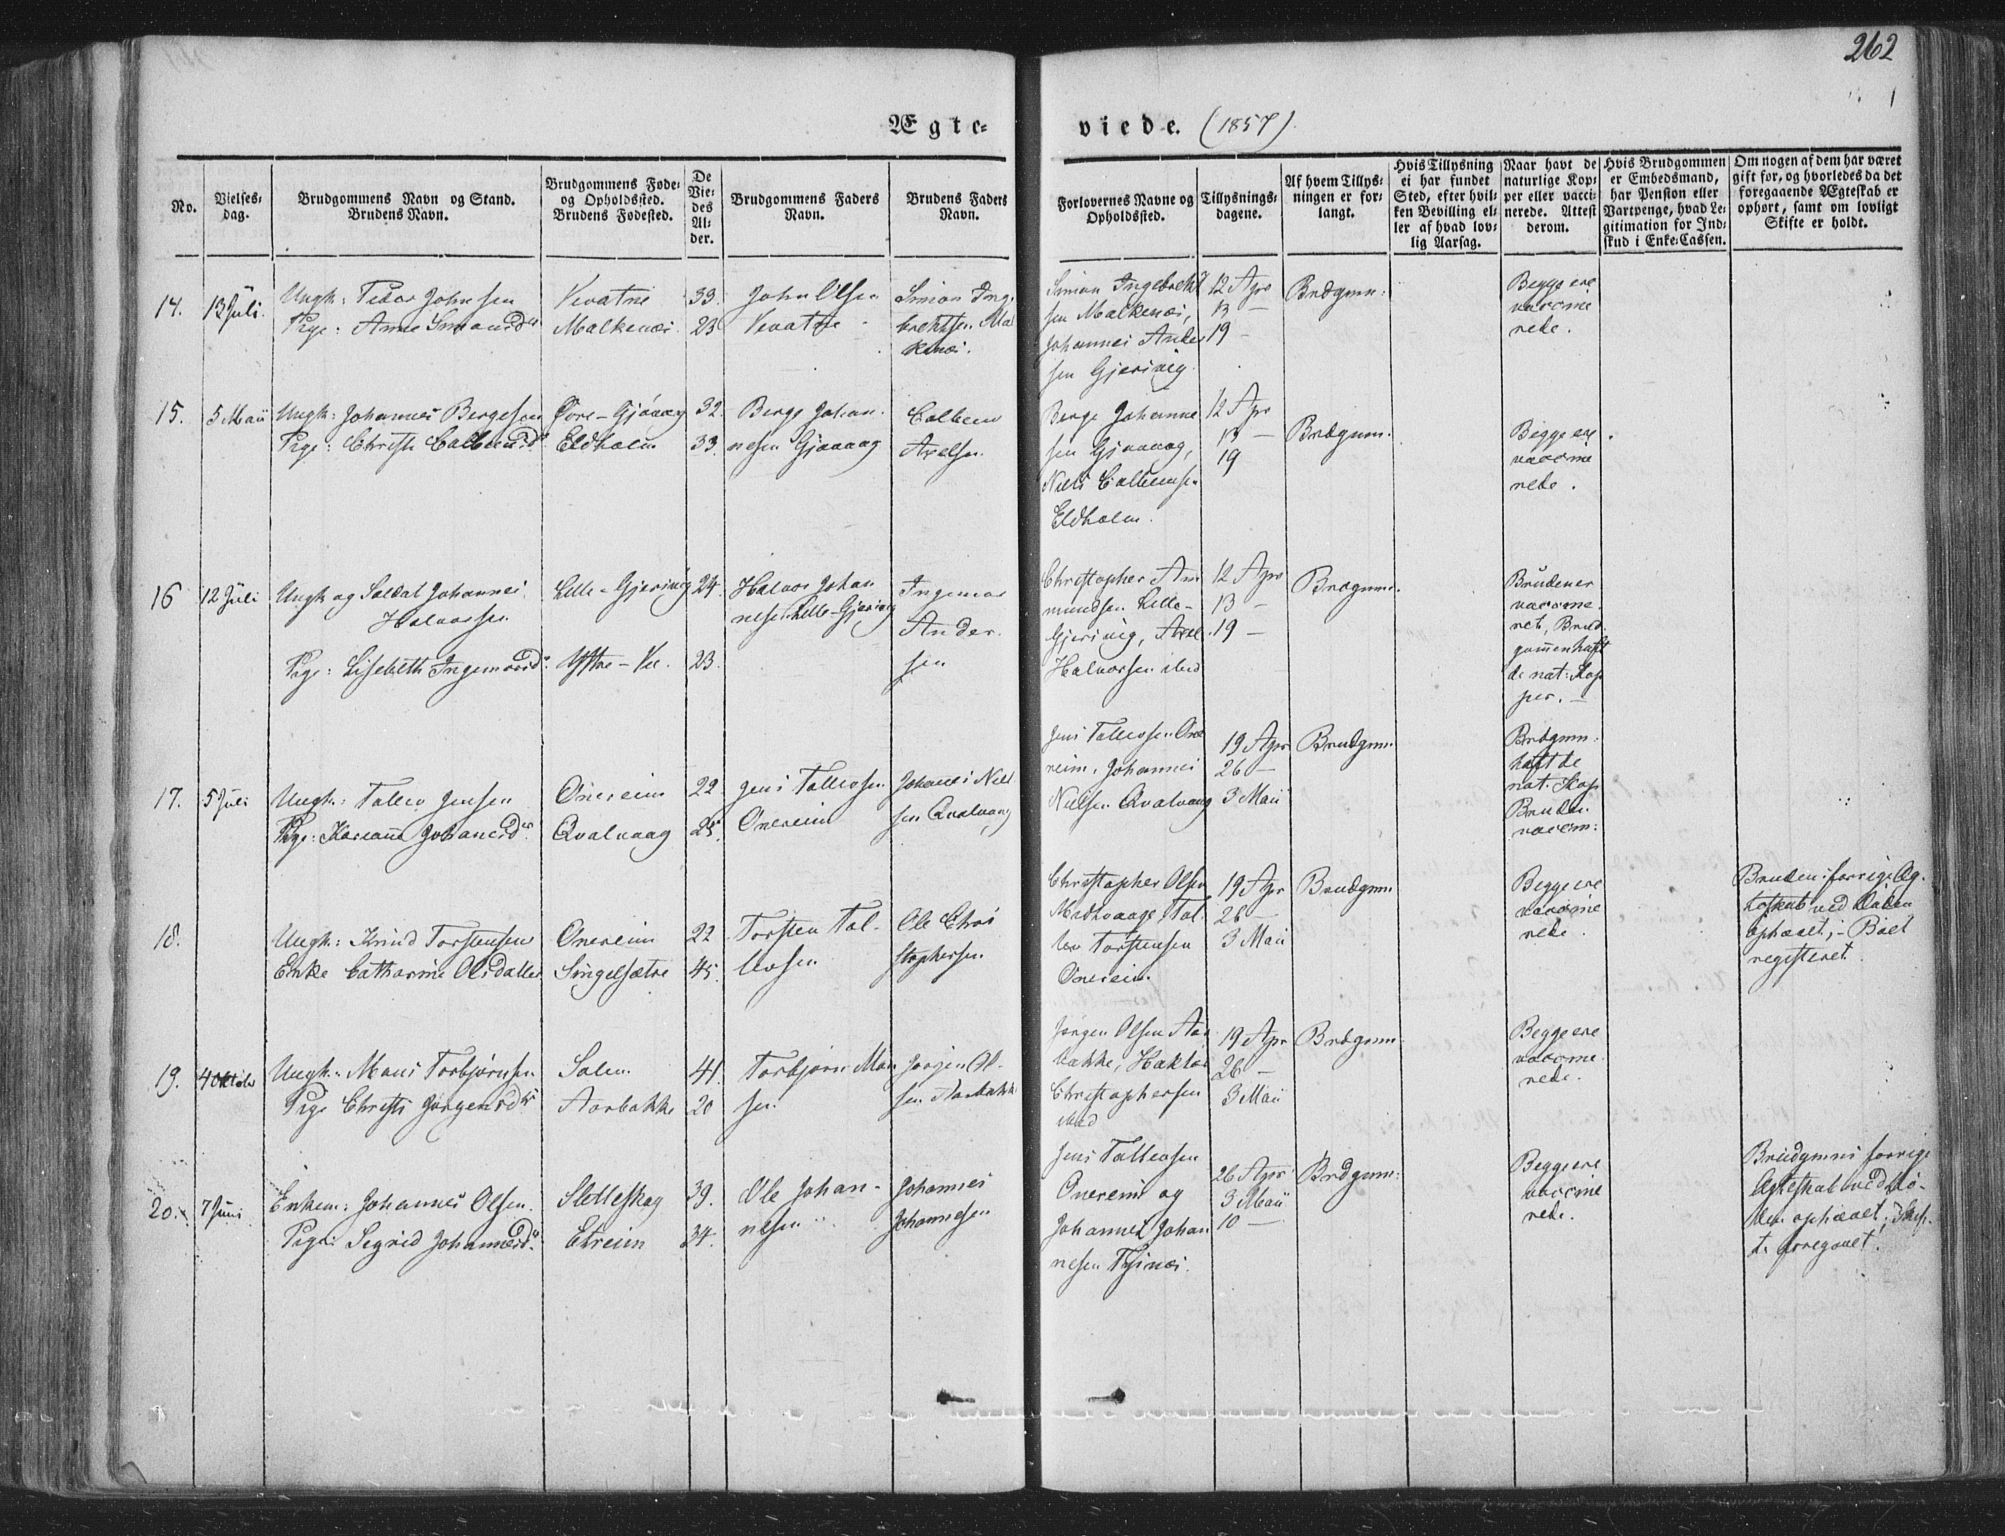 262
Ægte-
viede. (1857).
No.
Vielses-
dag.
Brudgommens Navn og Stand.
Brudens Navn.
Brudgommens Føde-
og Opholdssted.
Brudens Fødested.
De
Vie-
des
Al-
der.
Brudgommens Faders
Navn.
Brudens Faders
Navn.
Forlovernes Navne og
Opholdssted.
Tillysnings-
dagene.
Af hvem Tillys-
ningen er for-
langt.
Hvis Tillysning
ei har fundet
Sted, efter hvil-
ken Bevilling el-
ler af hvad lov-
lig Aarsag.
Naar havt de
naturlige Kop-
per eller vacci-
nerede. Attest
derom.
Hvis Brudgommen
er Embedsmand,
har Pension eller
Vartpenge, hvad Le-
gitimation for Ind-
skud i Enke-Cassen.
Om nogen af dem har været
gift før, og hvorledes da det
foregaaende Ægteskab er
ophørt, samt om lovligt
Skifte er holdt.
14.
13 Juli.
Ungk: Peder Johnsen
Pige: Anne
33.
23
Malkenæs.
John Olsen
Simon Inge
brektsen Mal
kenæs.
Simon Ingebrekt
sen Malkenæs,
Johannes Ander
sen Gjervig.
12 Apr
13 —
19 —
Brdgmn:
Begge ere
vaccine
rede.
15.
5 Maii
Ungk: Johannes Bergesen
Pige: Christi
Øvre-Gjøvaag
Eldholm
32.
33.
Berge Johan
nesen Gjøvaag
Colbein
Axelsen
Berge Johanne
sen Gjøvaag,
Niels Colbeinsen
Eldholm.
12 Apr
13 —
19
Brdgmn.
Begge ere
vaccine
rede.
16
12 Juli
Ungk og Soldat Johannes
Halvorsen
Pige: Lisebeth Ingemorsd.
Lille-Gjervig
Yttre-
24.
23.
Halvor Johan
nesen Lille-Gjervig
Ingemor
Ander
sen
Christopher Am
mundsen Lille-
Gjervig, Axel
Halvorsen ibid
12 Apr
13 —
19 —
Brdgmn.
Bruden er
vaccine
ret, Brud
gommen haft
de nat: Kop
per. —
17.
5 Juli
Ungk: Tollev Jensen
Pige: Karianna Johannesd.
Onereim
Qvalvaag
22.
25.
Jens Tollevsen
Onereim
Johannes Niel
sen Qvalvaag
Jens Tollevsen One
reim, Johannes
Nielsen Qvalvaag
19 Apr
26 —
3 Maii
Brudgmn
Brdgmn:
haft de
nat: Kop
Bruden
vaccin:
18.
Ungk: Knud Torstensen
Enke Catharine Olsdatter
Onereim
Singelsætre
22
45.
Torsten Tol-
levsen
Ole Chri
stophersen
Christopher Olsen
Medvaage, Tol
lev Torstensen
Onereim.
19 Apr
26 —
3 Maii
Brudgmn
Begge ere
vaccine
rede.
Bruden: forrige Æg.
teskab ved Døden
ophævet, — Boet
registeret.
19.
4 Oktobr
Ungk: Mons Torbjørnsen
Pige Christi Jørgensdr
Solem
Aarbakke
41.
20
Torbjørn Mon
sen
Jørgen Ol-
sen Aarbakke
Jørgen Olsen Aar
bakke, Haktor
Christophersen
ibid
19 Apr
26 —
3 Maii
Brdgmn.
Begge ere
vaccine
rede.
20.
7 Juni
Enkem: Johannes Olsen.
Pige: Sigrid Johannesd.
Sletteskog
Etreim
39.
34.
Ole Johan-
nesen
Johannes
Johannesen
Jens Tollevsen
Onereim og
Johannes Johan
nesen
26 Apr
3 Maii
10 —
Brdgmn:
Begge ere
vaccine
rede.
Brudgmns forrige
Ægteskab ved Dø-
den ophævet; Skif-
te foregaaet.